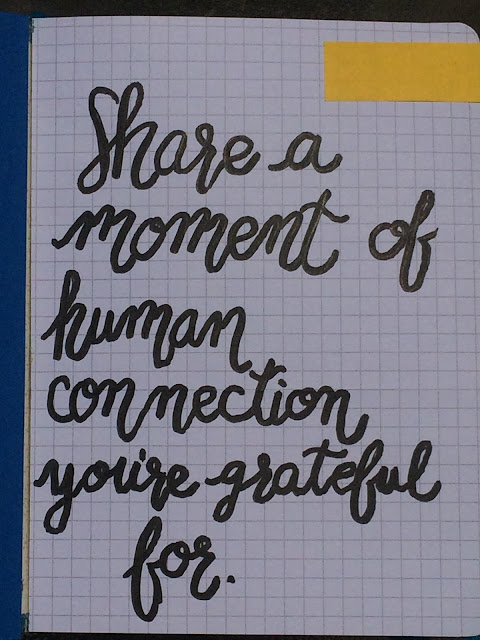 Share a
moment of
human
connection
you're grateful
for.